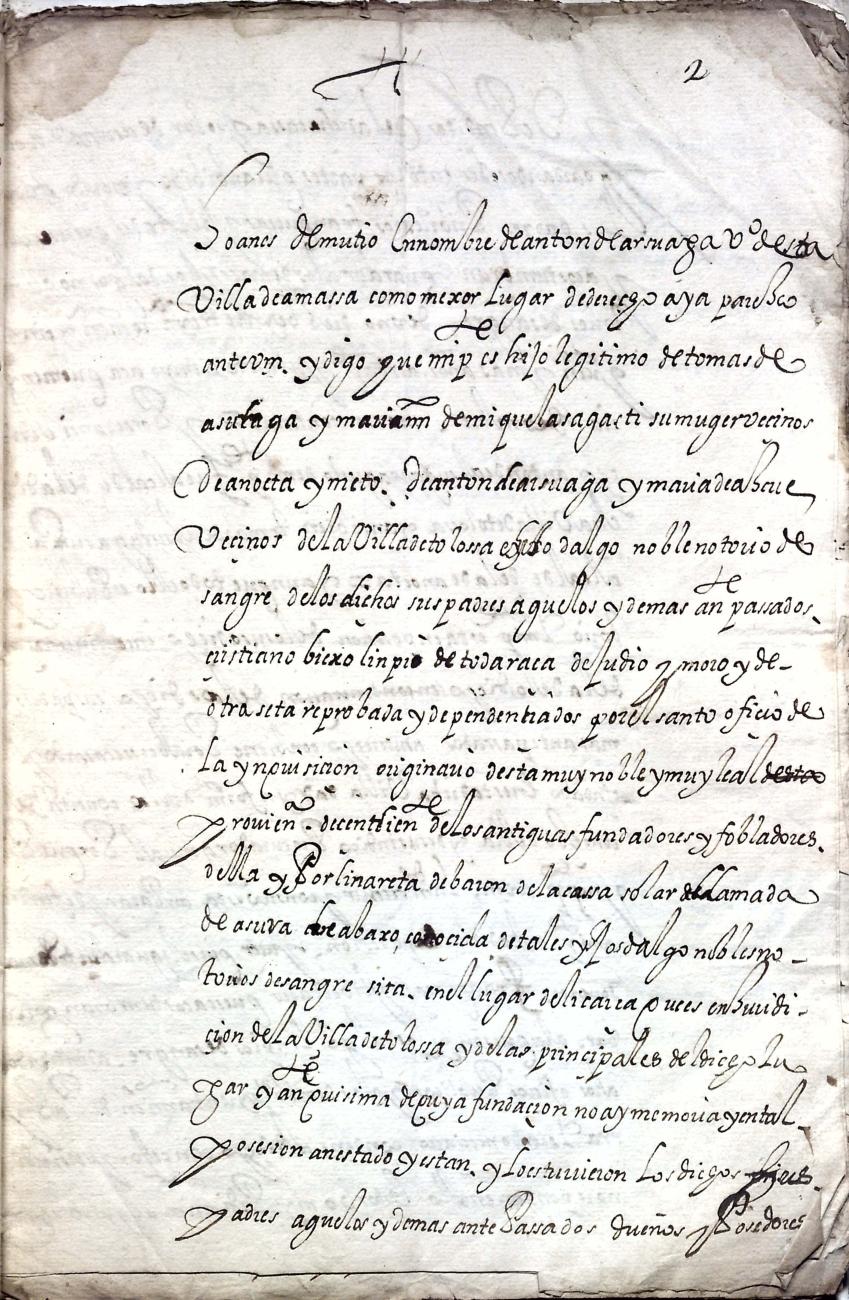 2
Joanes de mutio En nombre de anton de arsuaga Vº desta
Villa de amassa como mexor lugar de derecho aya paresco
ante vm. y digo que mi pte es hijo legitimo de tomas de
asuaga y maria de miquelasagasti su muger vecinos
De anoeta y nieto. De anton de arsuaga y maria de
Vecinos de la Villa de tolossa hijo dalgo noble notorio de
sangre de los dichos sus padres aguelos y demas antepassados.
cristiano biexo linpio de toda raca de Judio y moro y de
otra seta reprobada y dependenciados por el santo oficio de
La ynquisicion originario desta muy noble y muy leal
provien. decendien te de los antiguas fundadores y pobladores.
della y Por linea reta de baron de la cassa solar llamada
de asura de abaxo, conocida de tales yjos dalgo nobles no
torios de sangre sita. en el lugar de licarca ques en Juridi
cion de La Villa de tolossa y de las principales del dicho lu
gar y antequisima de cuya fundacion no ay memoria y en tal
posesion an estado y estan. y lo estuvieron Los dichos
padres aguelos y demas ante Passados dueños y Posedores